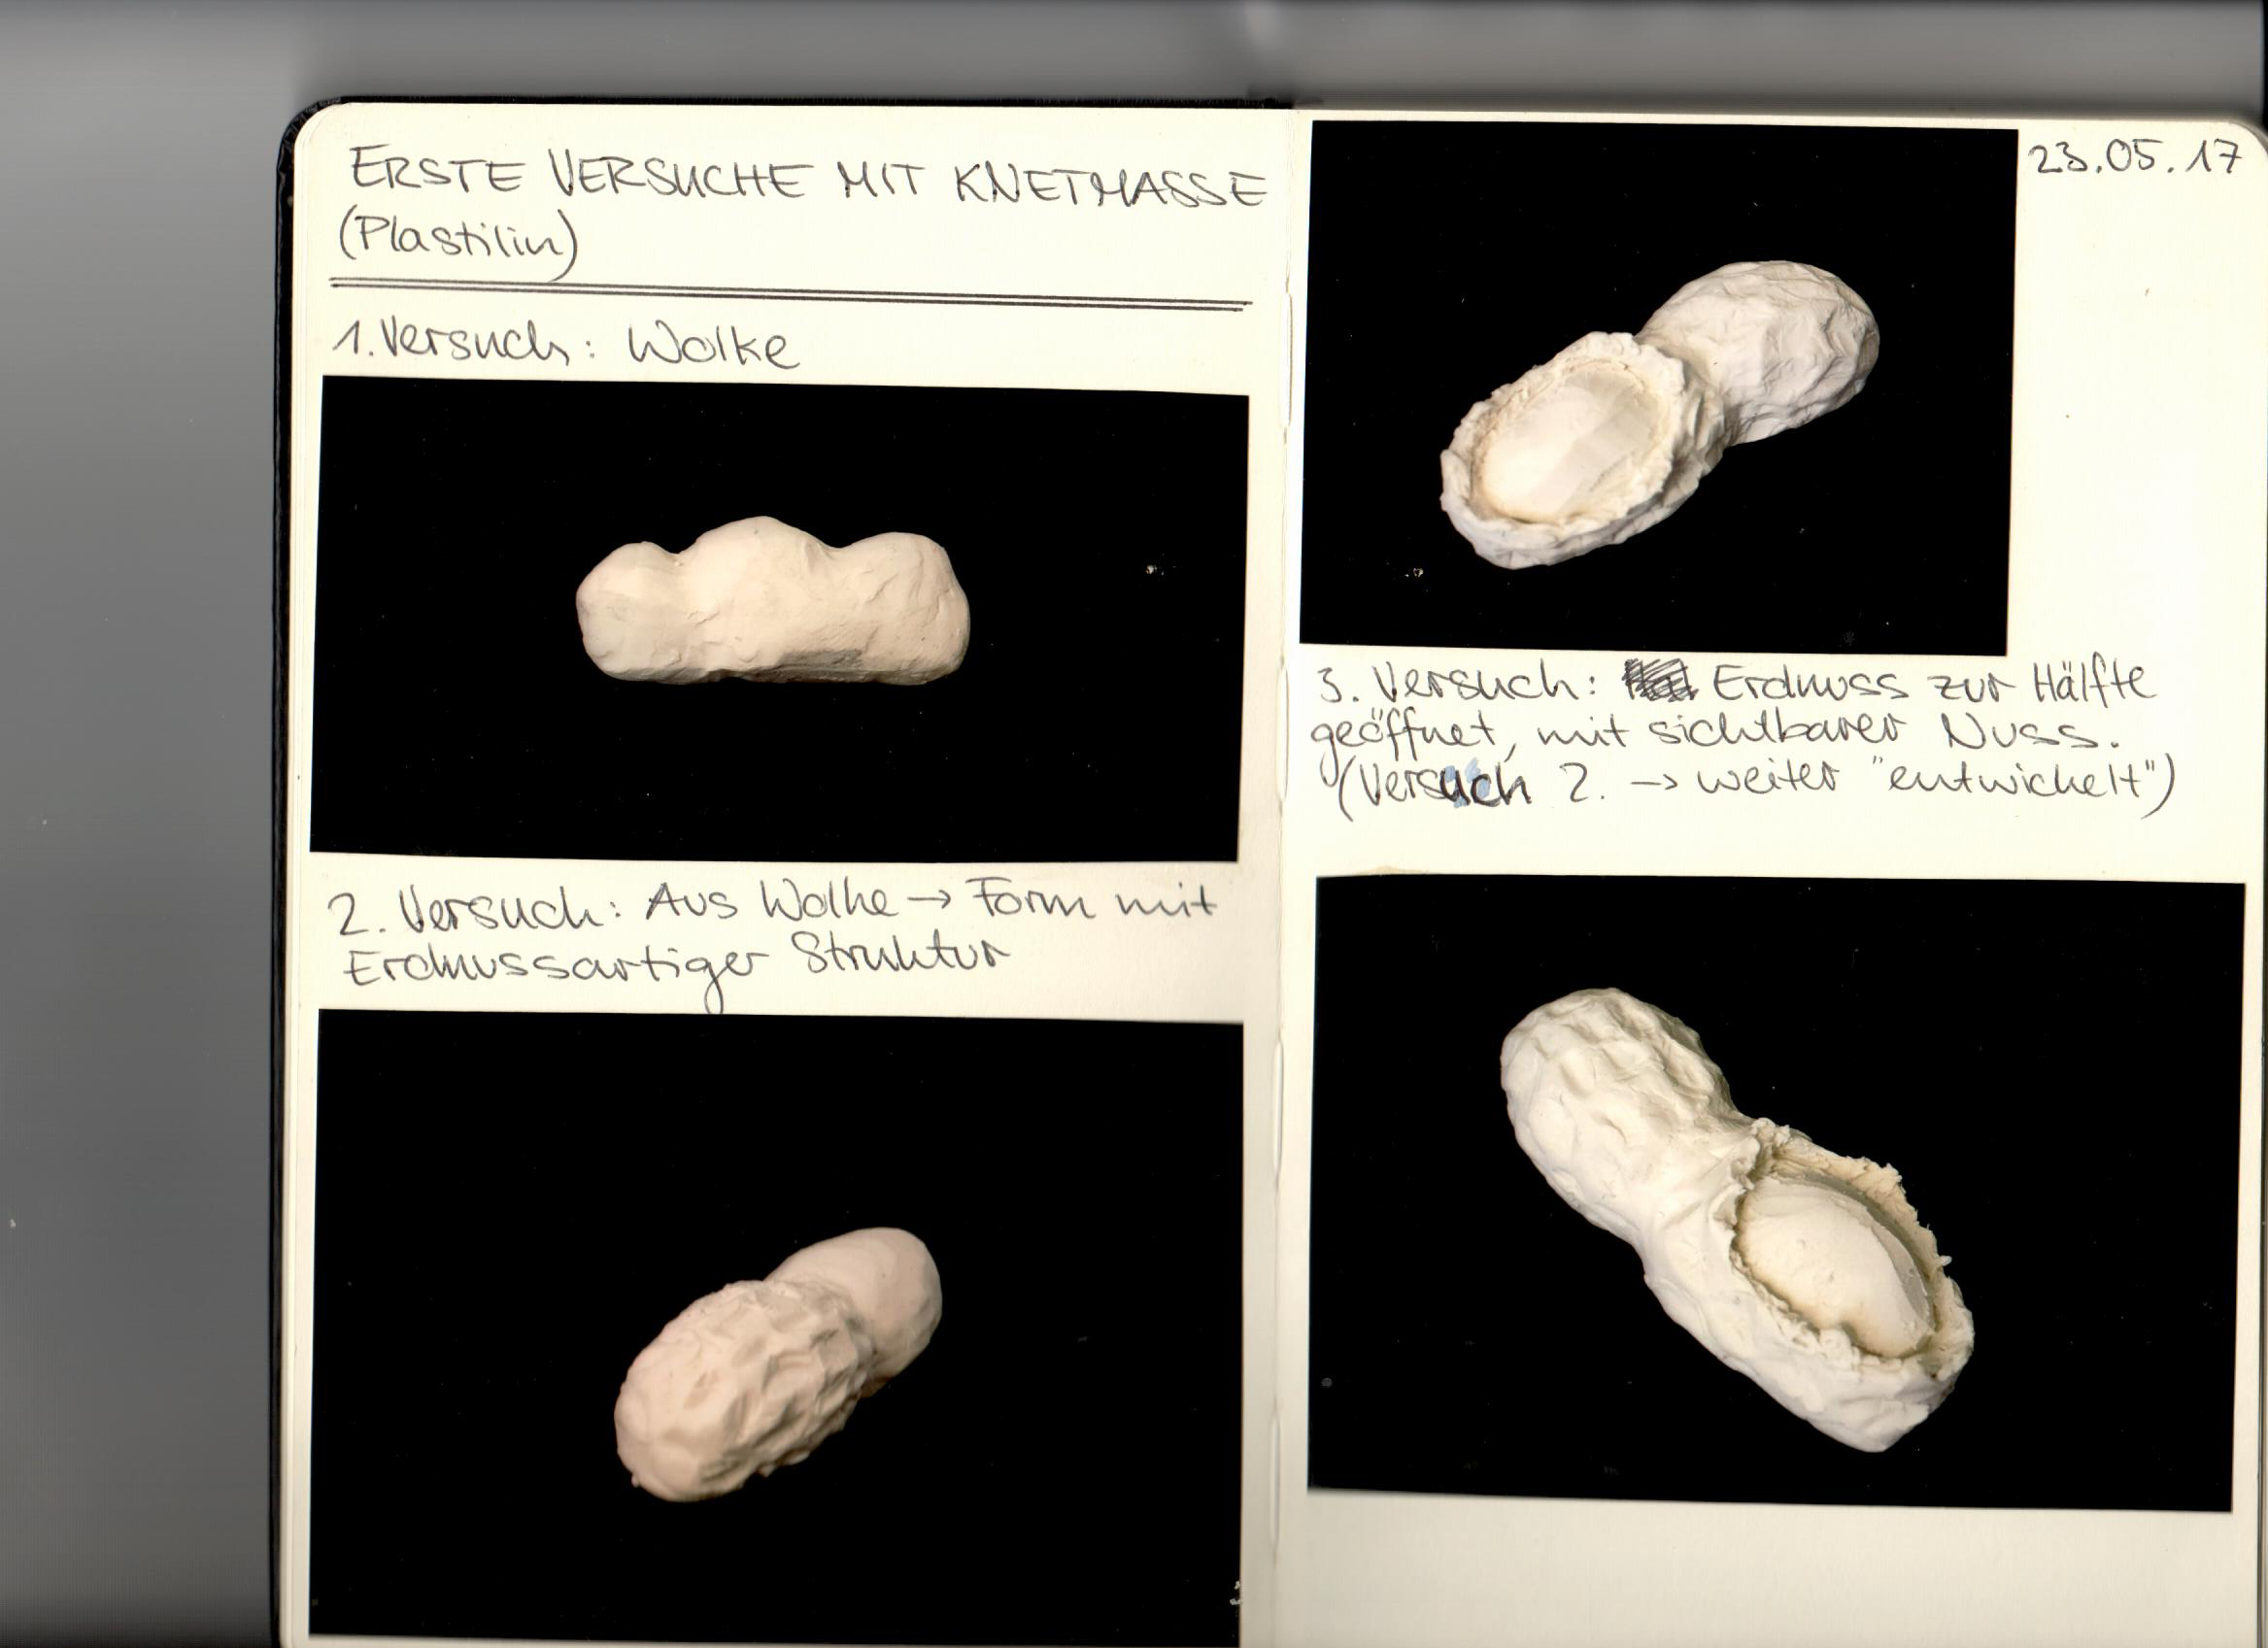 ERSTE VERSUCHE MIT KNETMASSE
(Plastilin)
1. Versuch: Wolke
2. Versuch: Aus Wolke → Form mit
Erdnussartiger Struktur
23.05.17
3. Versuch: Erdnuss zur Hälfte
geöffnet, mit sichtbarer Nuss.
(Versuch 2. → weiter "entwickelt")